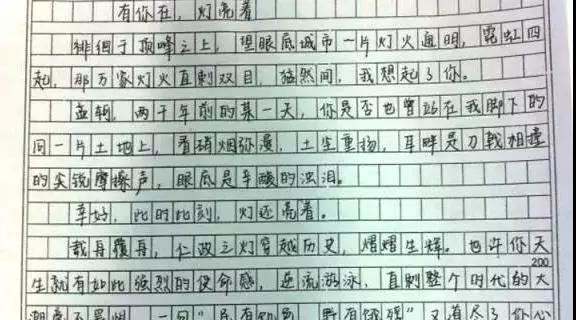 有你在，灯亮着
徘徊于顶峰之上，望眼底城市一片灯火通明，霓虹四
起，那万家灯火直刺双目，猛然间，我想起了你。
孟轲，两千年前的某一天，你是否也曾站在我脚下的
同一片土地上，看硝烟弥漫，土尘重扬，耳畔是刀戟相撞
的尖锐摩擦声，眼底是辛酸的浊泪。
幸好，此时此刻，灯还亮着。
载舟覆舟，仁政之灯穿越历史，熠熠生辉。也许你天
200
生就有如此强烈的使命感，逆流游泳，直刺整个时代的大
一句“民有饥色，野有饿殍”又道尽了你心